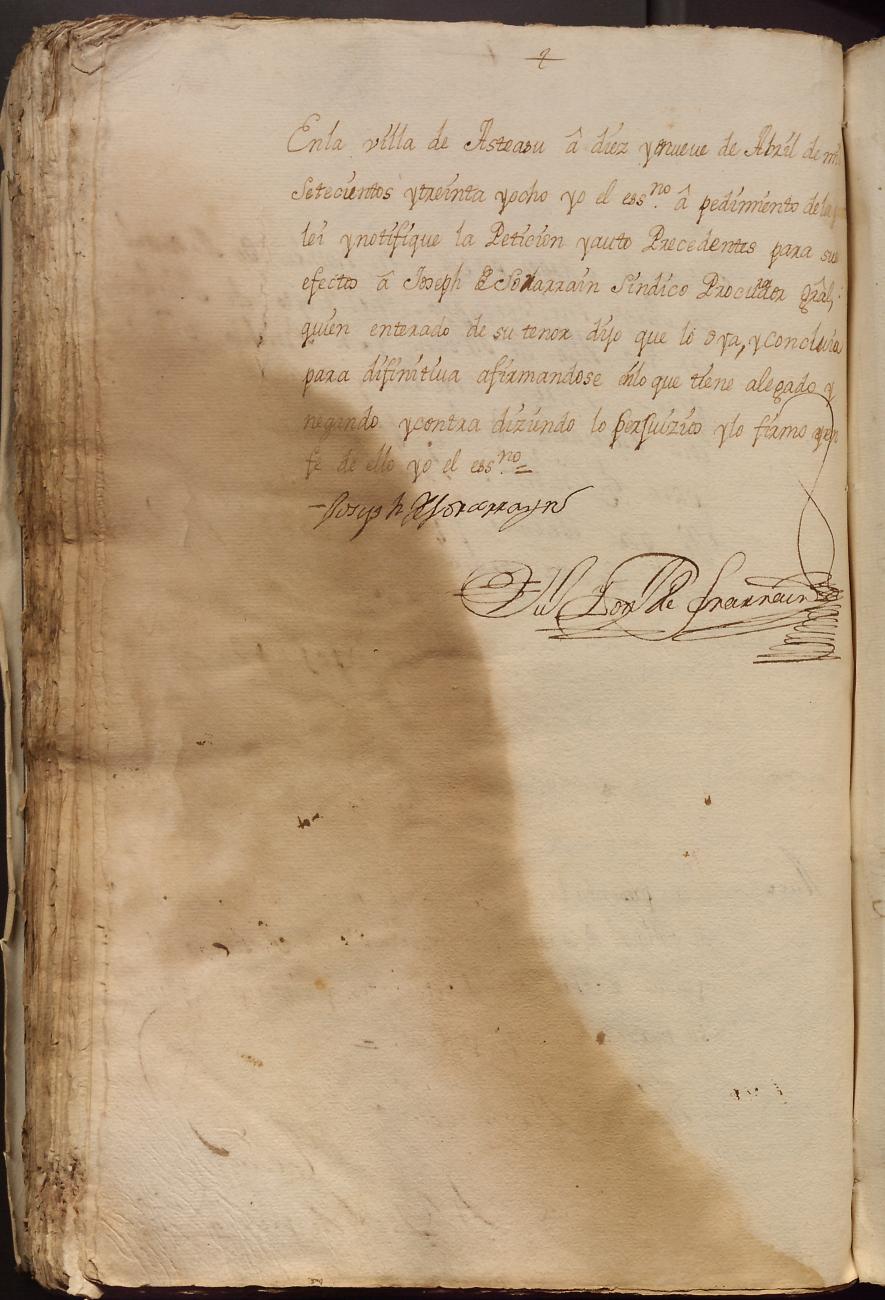 Enla villa de Asteasu â diez ynueve de Abril de
Setecientos ytreinta yocho yo el ess.no â pedimiento de la
lei ynotifique la Peticion yauto Precedentes para su
efecto â Joseph de Sorarrain Sindico Procurador Grâl,
quien enterado de su tenor dijo que lo oya, yConcluia
para difinitiua afirmandose enlo que tiene alegado y
negando ycontra diziendo lo perjuizico ylo firmo yen
fe de ello yo el ess.no =
Joseph de Sorarrayn
de